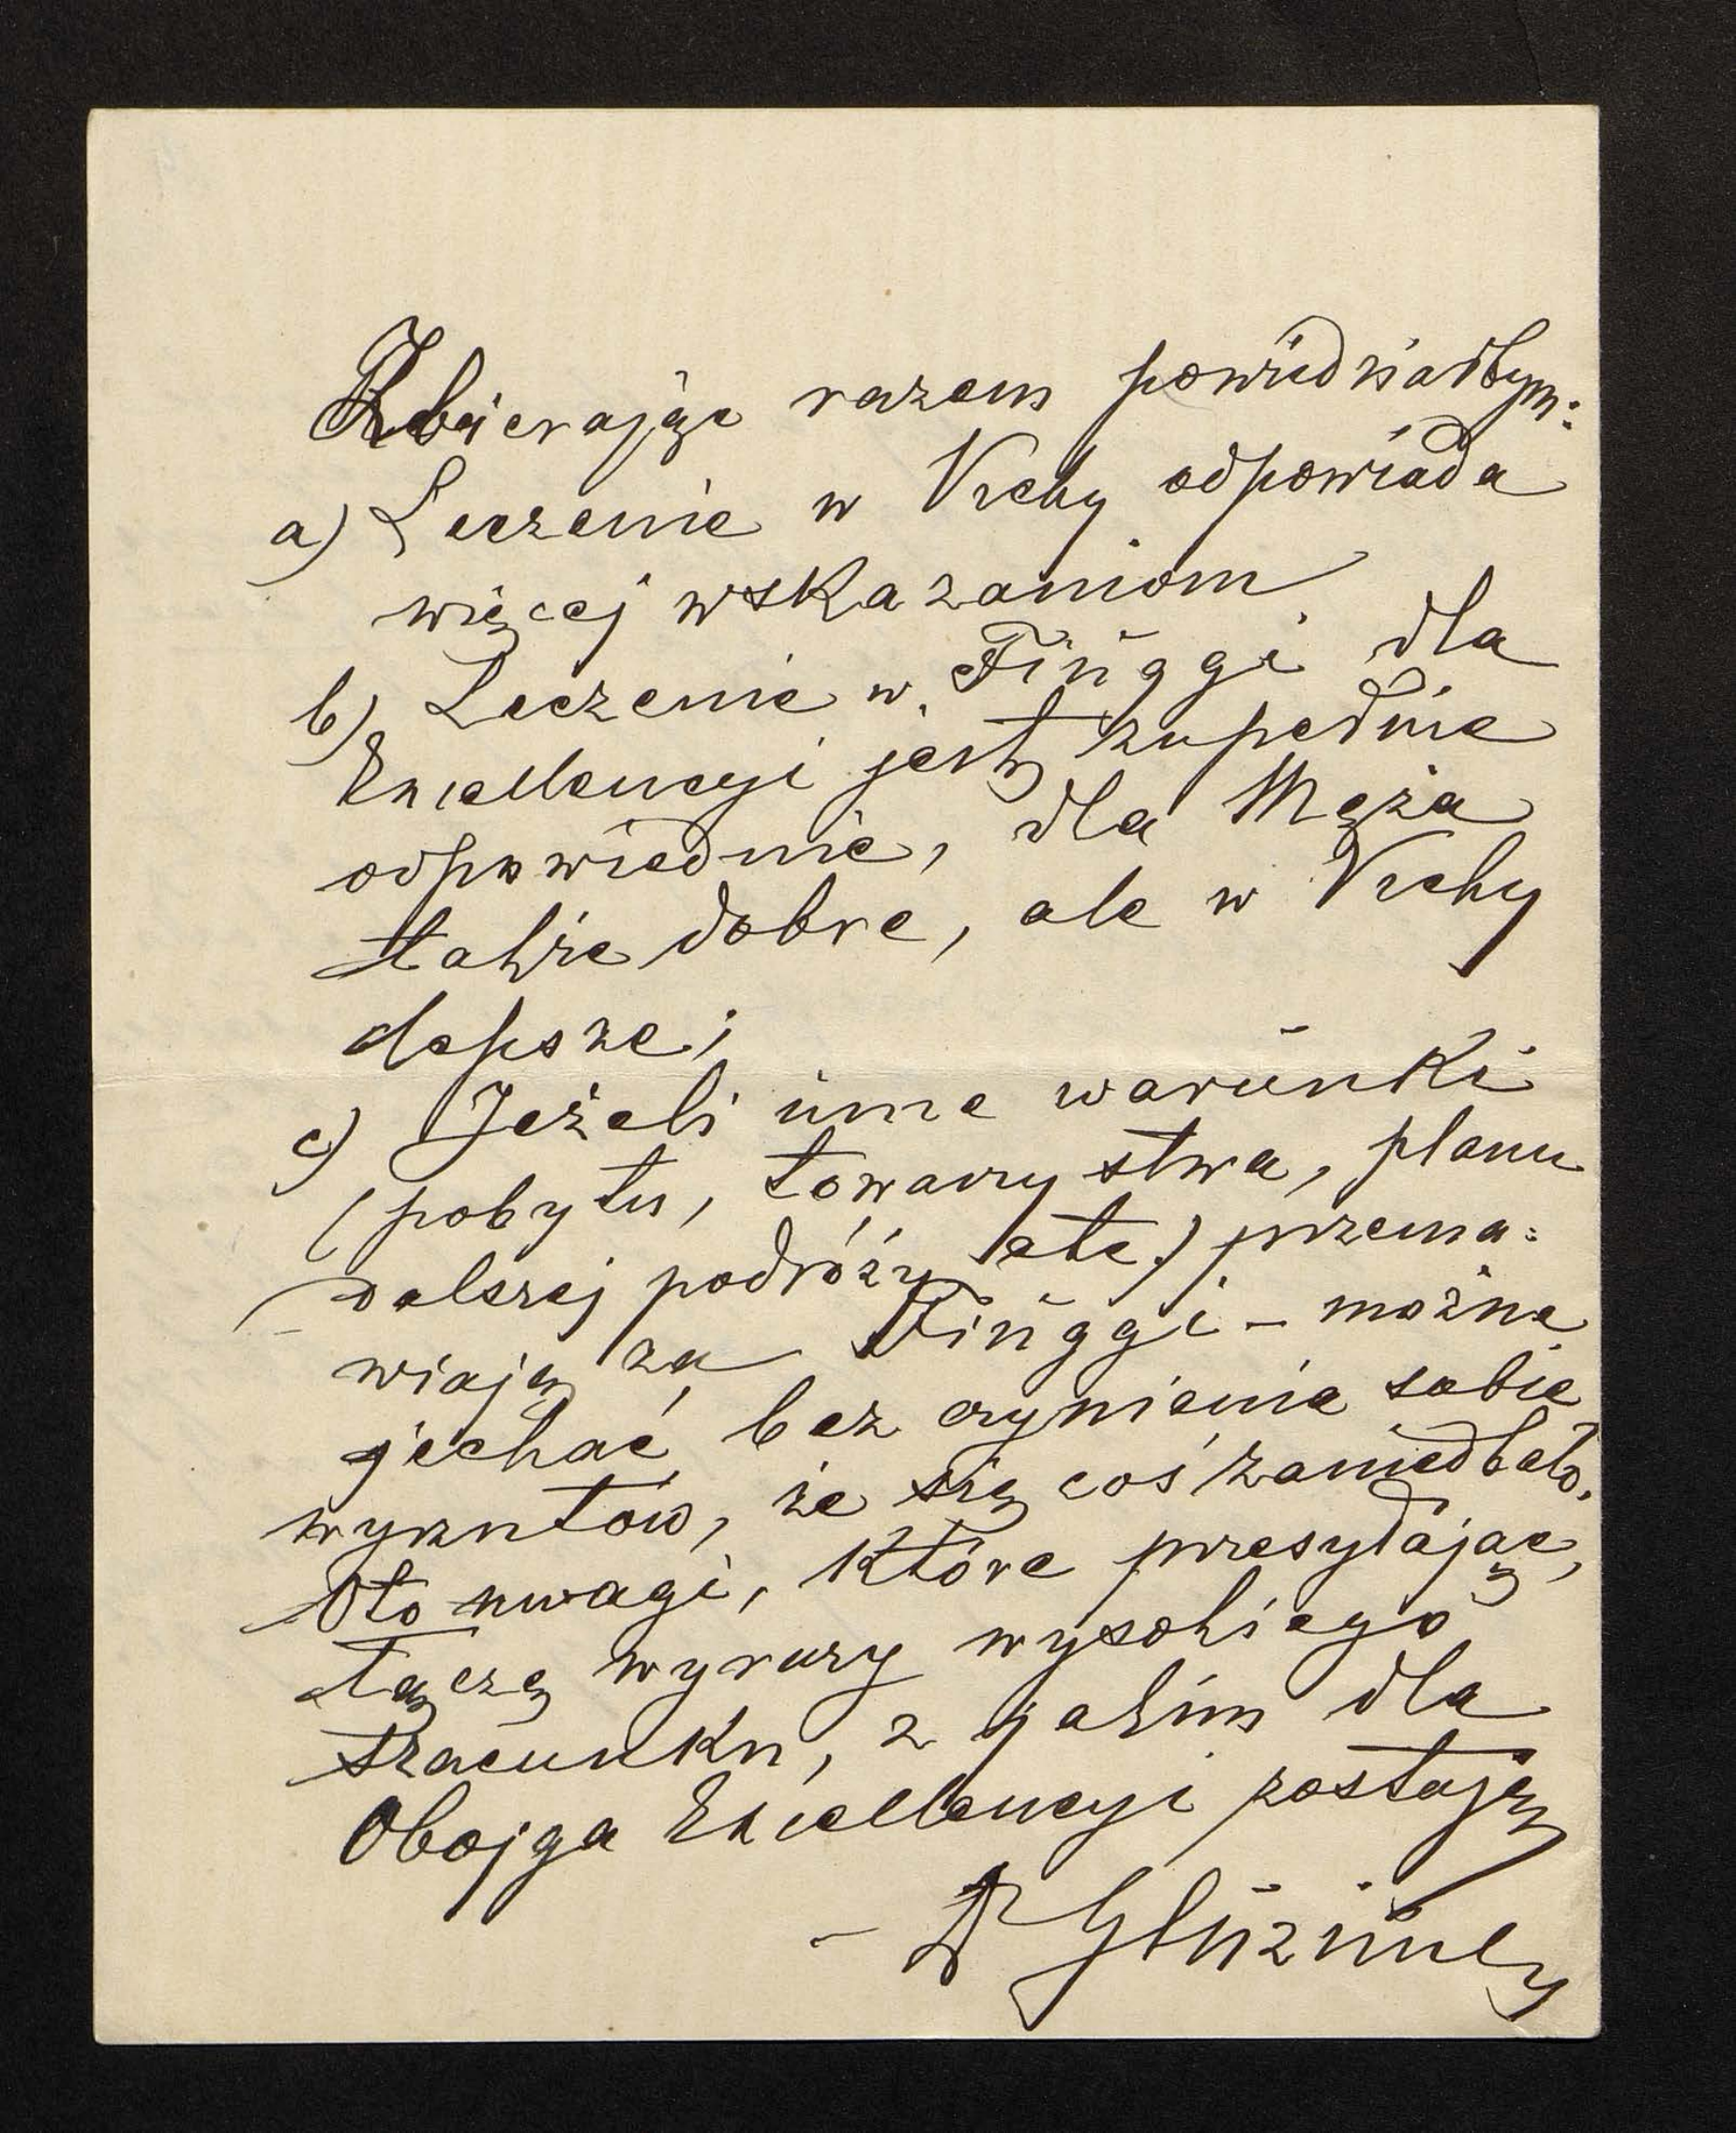 Zbierając razem powiedziałbym:
a) Leczenie w Vichy odpowiada
więcej wskazaniom
b) Leczenie w Fiuggi dla
Excellencyi jest zupełnie
odpowiednie, dla Męża
także dobre, ale w Vichy
lepsze;
c) Jeżeli inne warunki
(pobytu, towarzystwa, planu
dalszej podróży etc.) przema=
wiają za Fiuggi – można
jechać bez czynienia sobie
wyrzutów, że się coś zaniedbało.
Oto uwagi, które przesyłając,
łączę wyrazy wysokiego
szacunku, z jakim dla
Obojga Excellencyi zostaję
– Gluziński